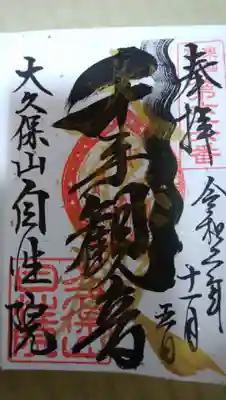 奉拝
令和二年
十一月
五日
千手観音
大久保山自性院